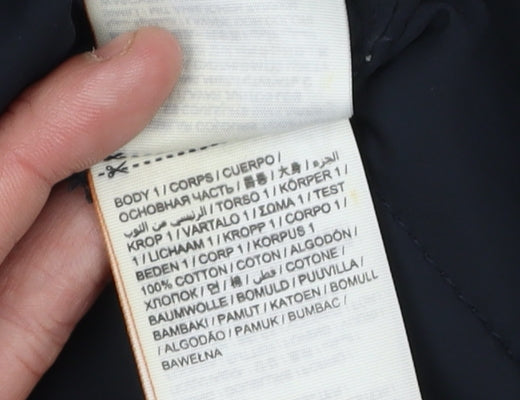 BODY 1 / CORPS / CUERPO /
ОСНОВНАЯ ЧАСТЬ / / 大身 / الجزء
الرئيسي من الثوب / TORSO 1 / KÖRPER 1 /
KROP 1 / VARTALO 1 / ΣΩΜΑ 1 / TEST
1 / LICHAAM 1 / KROPP 1 / CORPO 1 /
BEDEN 1 / CORP 1 / KORPUS 1
100% COTTON / COTON / ALGODÓN /
ХЛОПОК / 면 / 棉 / قطن / COTONE /
BAUMWOLLE / BOMULD / PUUVILLA /
BAMBAKI / PAMUT / KATOEN / BOMULL
/ ALGODÃO / PAMUK / BUMBAC /
BAWEŁNA